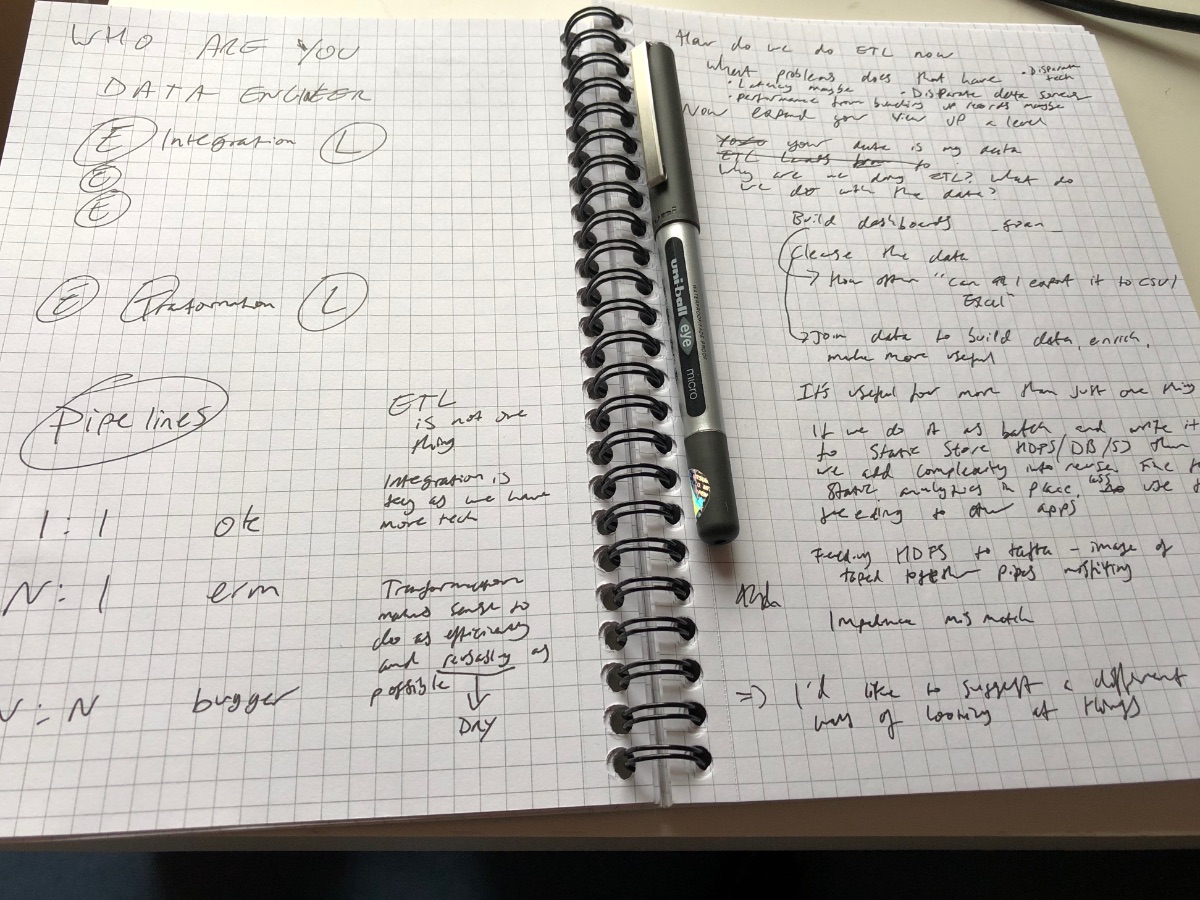 WHO ARE YOU
DATA ENGINEER
E Integration L
E
E
E Tranformation L
Pipelines
1:1 ok
N:1 erm
N:N bugger
ETL
is not one
thing
Integration is
key as we have
more tech
Tranformation
makes sense to
do as efficiency
and reusably as
possible
DRY
How do we do ETL now
What problems does that have
• Disparate
tech
• Latency maybe • Disparate data sources
• performance from bundling up records maybe
Now expand your view up a level
your data is my data
ETL
to
Why are we doing ETL? What do
we do with the data?
Build dashboards
Cleanse the data
→ How often "Can I export it to CSV/
Excel"
→ Join data to build data, enrich,
make more useful
It's useful for more than just one thing
If we do it as batch and write it
to Static Store HDFS/DB/S3 then
we add complexity into reuse. Fine
Static analytics in place, less use
feeding to other apps
Feeding HDFS to kafka - image of
taped together pipes misfitting
Impedence mis match
=> I'd like to suggest a different
way of looking at things
uni-ball eye
micro